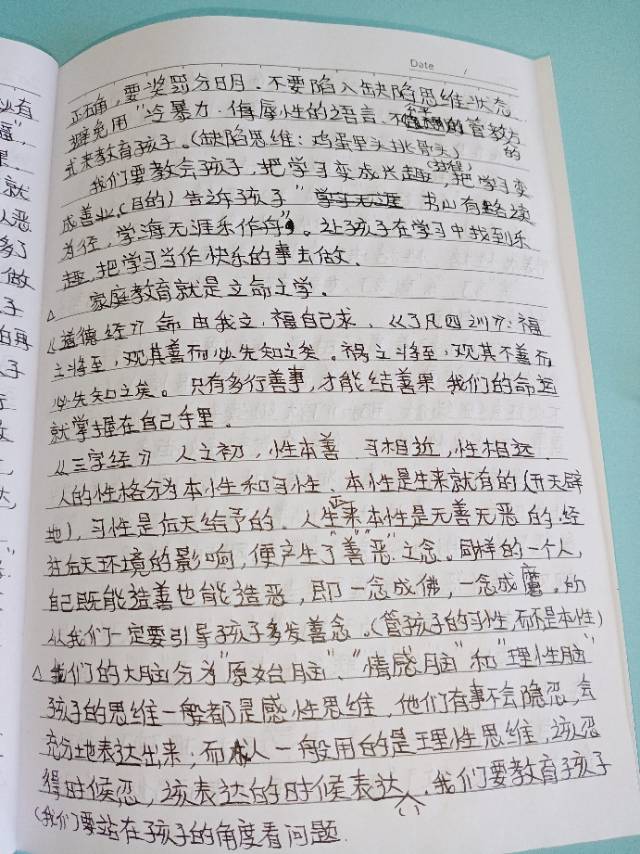 Date /
正确，要奖罚分明。不要陷入缺陷思维状态
避免用"冷暴力·侮辱性的语言.不
的管教方
式来教育孩子。(缺陷思维：鸡蛋里头挑骨头) 的
我们要教会孩子，把学习变成兴趣，把学习变
成善业，(目的) 告诉孩子"书山有路读
为径，学海无涯乐作舟"。让孩子在学习中找到乐
趣，把学习当作快乐的事去做.
△ 家庭教育就是立命之学。
《道德经》命由我立，福自己求、《了凡四训》：福
之将至，观其善而必先知之矣。祸之将至，观其不善而
必先知之矣。只有多行善事，才能结善果 我们的命运
就掌握在自己手里.
《三字经》人之初，性本善 习相近，性相远.
人的性格分为本性和习性、本性是生来就有的(开天辟
地)，习性是后天给予的. 人生来本性是无善无恶的.经
往后天环境的影响，便产生了"善恶"之念。同样的一个人，
自己既能造善也能造恶，即一念成佛，一念成魔。的
从我们一定要引导孩子多发善念。(管孩子的习性而不是本性)
△ 我们的大脑分为"原始脑"、"情感脑"和"理性脑"
孩子的思维一般都是感性思维，他们有事不会隐忍，会
充分地表达出来，而成人一般用的是理性思维，该忍
得时候忍，该表达的时候表达. 我们要教育孩子
(我们要站在孩子的角度看问题.